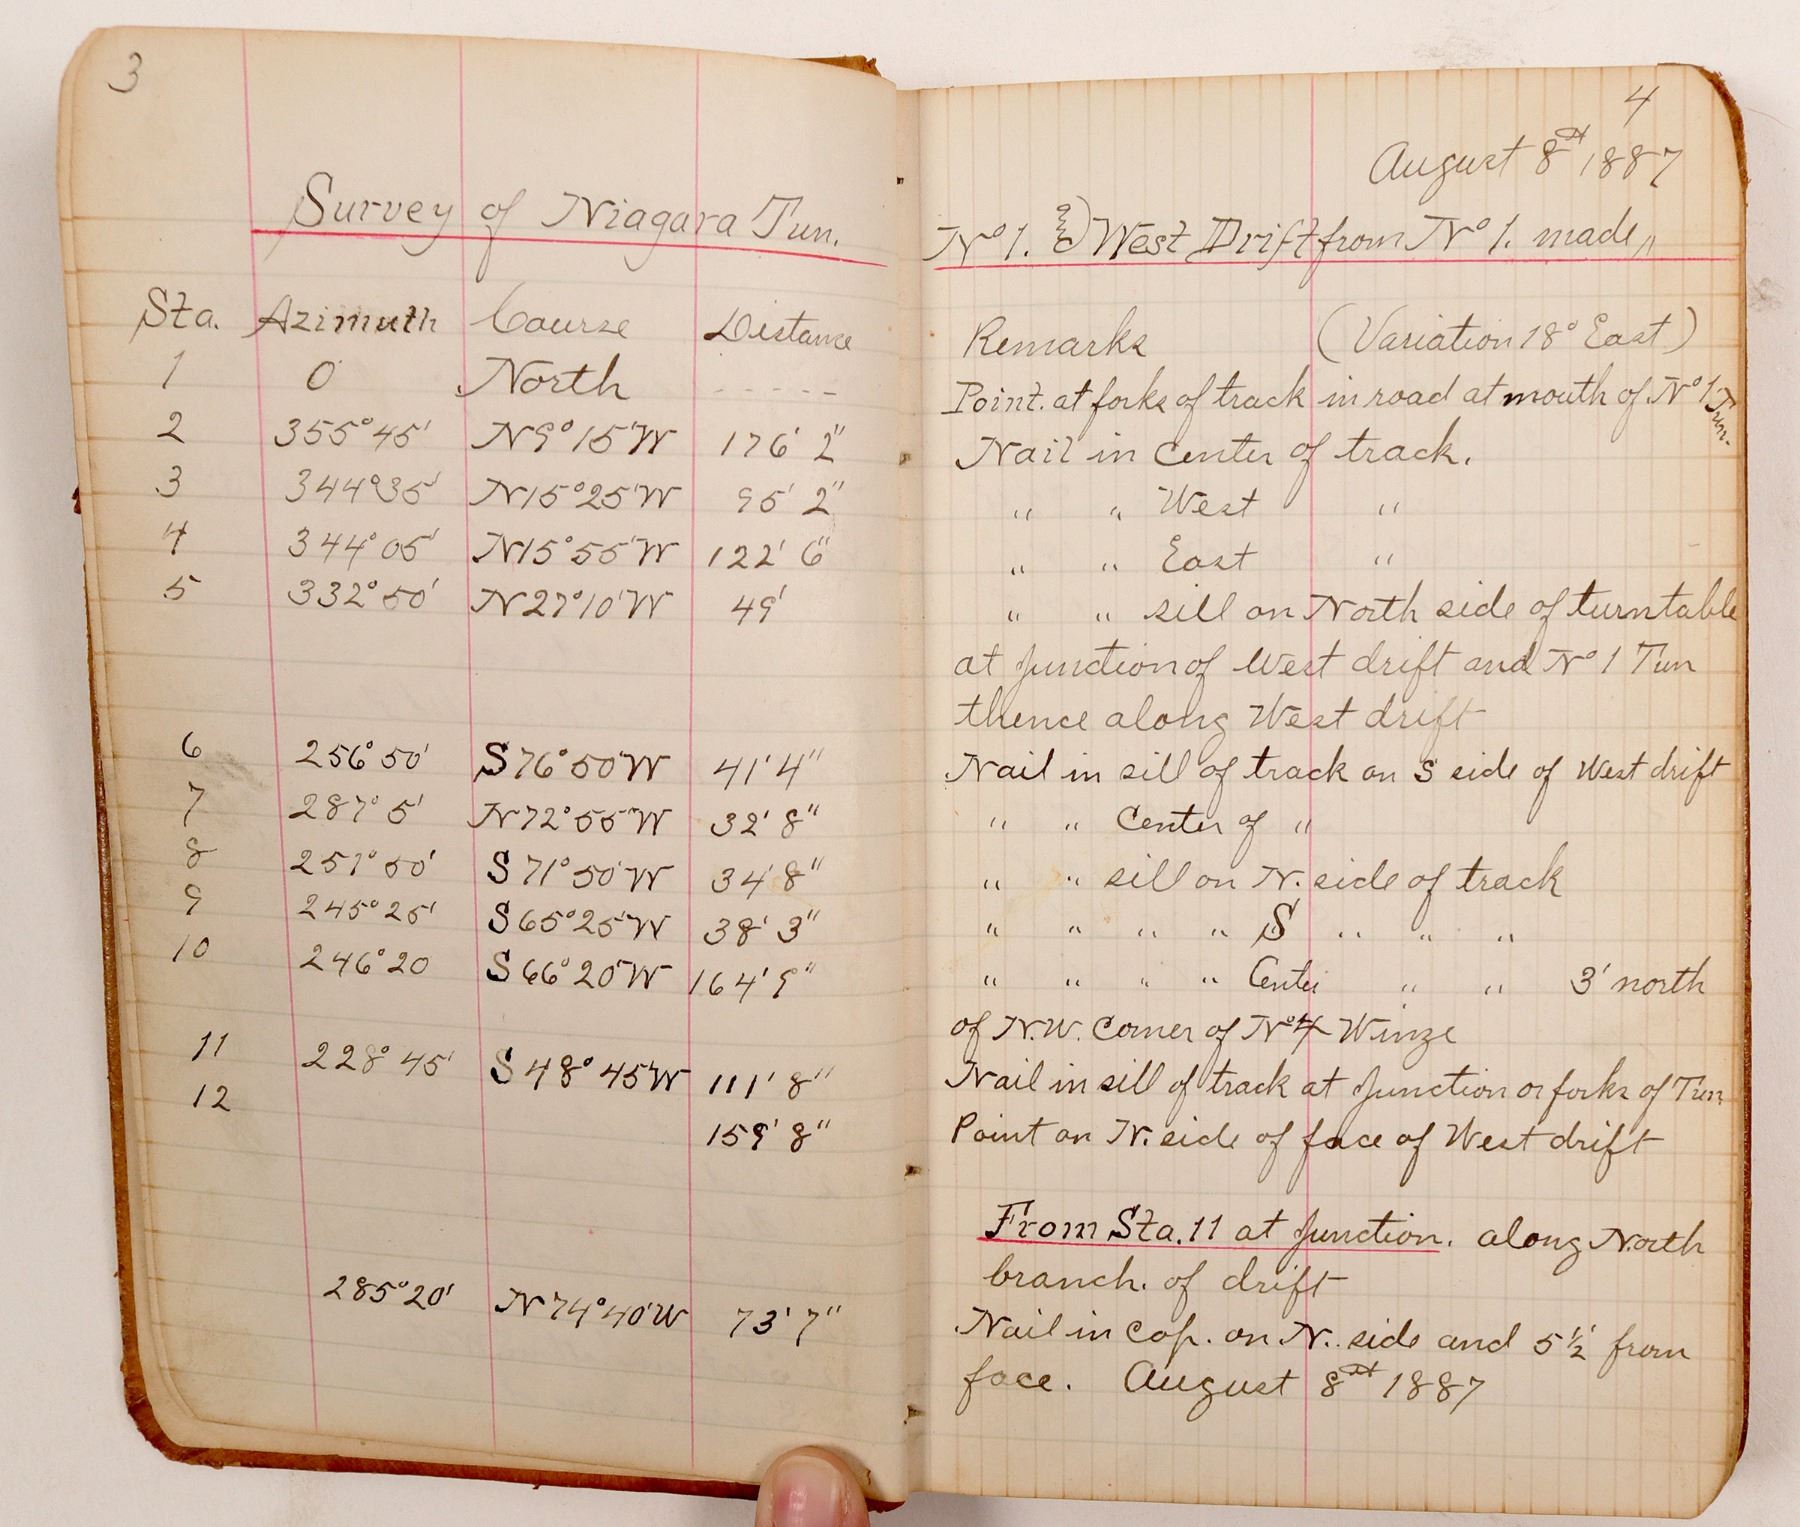 3
Survey of Niagara Tun.
Sta. Azimuth Course Distance
1 0 North - - - - -
2 355°45' N9°15'W 176' 2"
3 344°35' N15°25'W 95' 2"
4 344°05' N15°55'W 122' 6"
5 332°50' N27°10'W 49'
6 256°50' S76°50'W 41' 4"
7 287°5' N72°55'W 32' 8"
8 251°50' S71°50'W 34' 8"
9 245°25' S65°25'W 38' 3"
10 246°20 S66°20'W 164' 9"
11 228°45' S48°45'W 111' 8"
12 159' 8"
285°20' N74°40'W 73' 7"
4
August 8st 1887
No 1. &) West Drift from No 1. made,,
Remarks (Variation 18° East)
Point. at forks of track in road at mouth of No 1 Tun.
Nail in Center of track.
" " West "
" " East "
" " sill on North side of turntable
at junction of West drift and No 1 Tun
thence along West drift
Nail in sill of track on S side of West drift
" " Center of "
" " sill on N. side of track
" " " " S " " "
" " " " Center " " 3' north
of N.W. Corner of No 4 Winze
Nail in sill of track at junction or forks of Tun
Point on N. side of face of West drift
From Sta. 11 at junction. along North
branch. of drift
Nail in Cap. on N. side and 5½ from
face. August 8st 1887